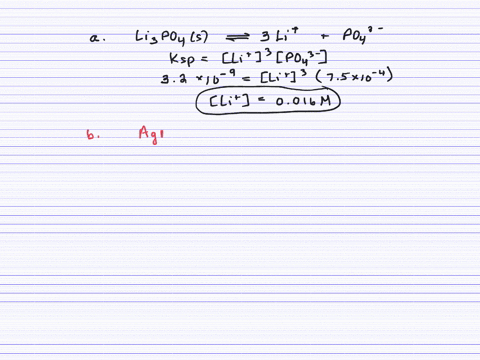 a. Li₃PO₄(s) ⇌ 3Li⁺ + PO₄³⁻
Ksp = [Li⁺]³[PO₄³⁻]
3.2 × 10⁻⁹ = [Li⁺]³ (7.5×10⁻⁴)
[Li⁺] = 0.016 M
b. Ag